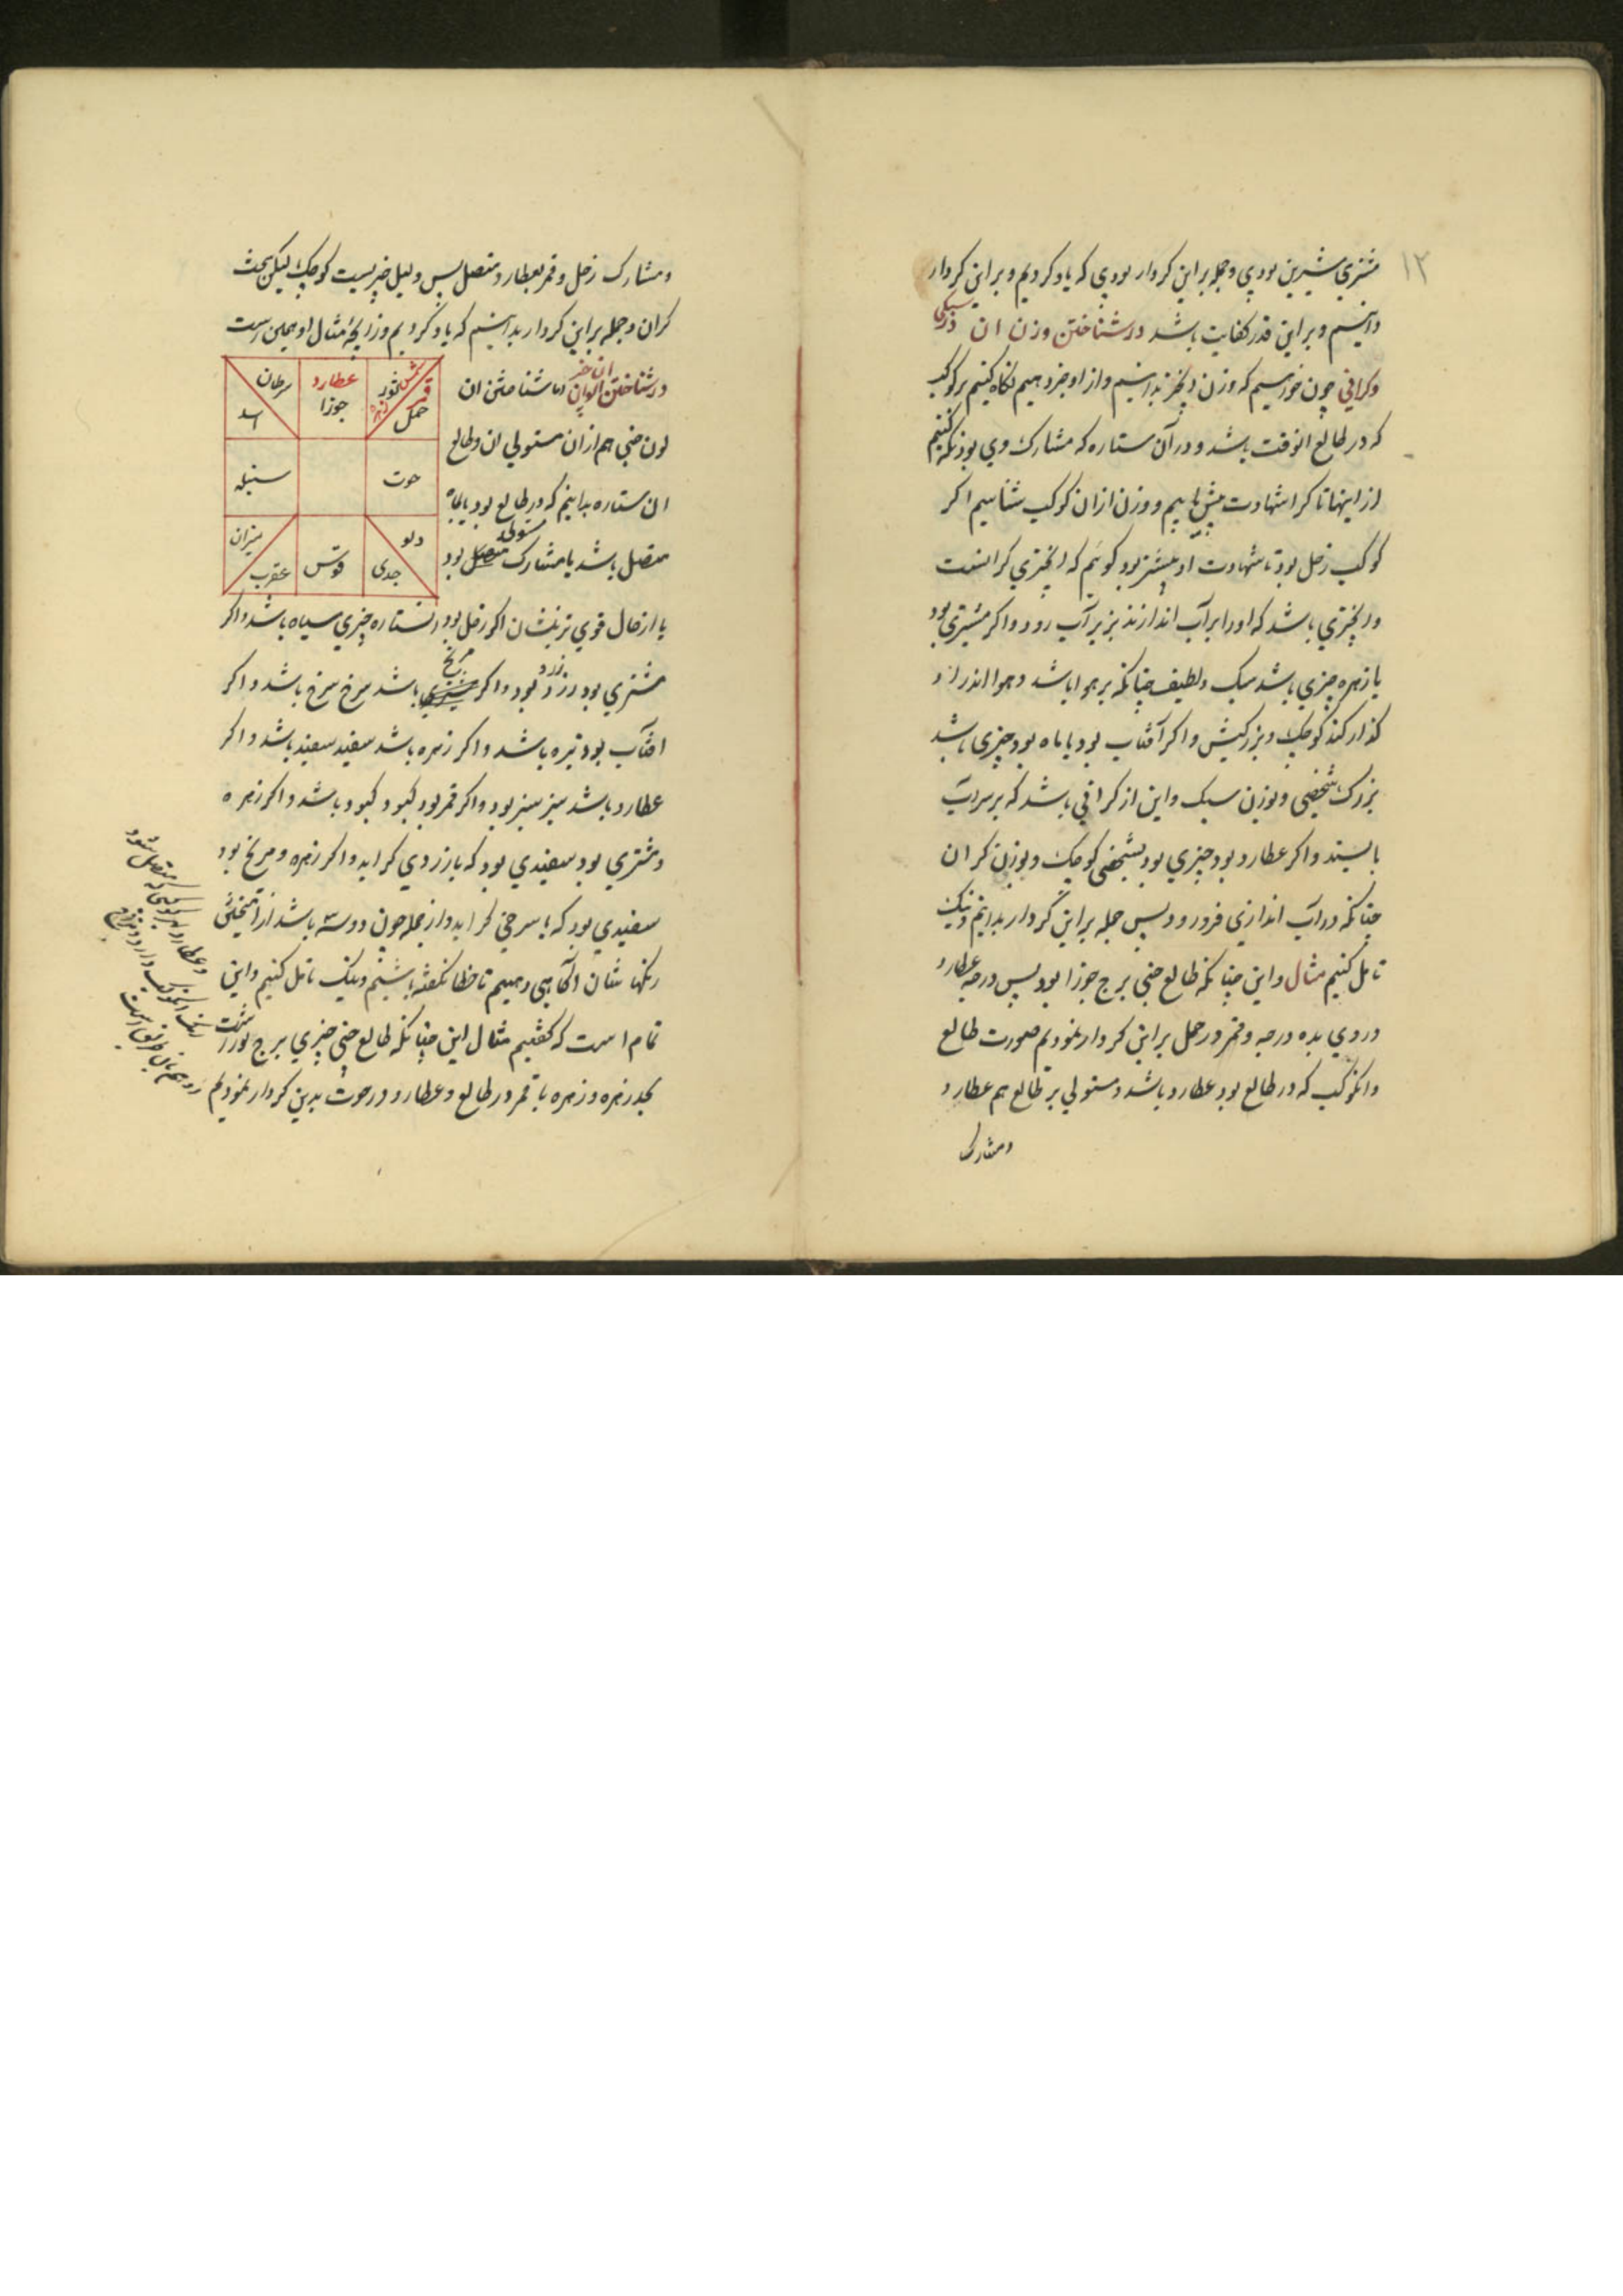 ۱۳
مشتری شیرین بودی و جمله براین کردار بودی که یاد کردیم و براین کردار
دانیم و براین قدر کفایت باشد در شناختن وزن ان در سبکی
و کرانی چون خواهیم که وزن چیز بدانیم و از او خبر دهیم نکاه کنیم بر کوکب
که در طالع انوقت باشد و در آن ستاره که مشارک وی بود نکه کنیم
از اینها تا کرا شهادت بیش یابیم و وزن ازان کوکب شناسیم اکر
کوکب زحل بود تا شهادت او بیشتر بود کوئیم که ان چیزی کرانست
و ان چیزی باشد که اورا بر آب اندازند بزیر آب رود و اکر مشتری بود
یا زهره چیزی باشد سبک و لطیف چنانکه بر هوا باشد و هوا اندر او
کذار کند کوچک و بزرکیش و اکر آفتاب بود یا ماه بود چیزی باشد
بزرک شخصی و بوزن سبک و این از کرانی باشد که بر سر آب
بایستد و اکر عطارد بود چیزی بود بشخصی کوچک و بوزن کران
چنانکه در آب اندازی فرو رود پس جمله براین کردار بدانیم و نیک
تامل کنیم مثال و این چنانکه طالع خبی برج جوزا بود پس درجه عطارد
در وی بده درجه و قمر در حمل براین کردار نمودیم صورت طالع
و انکوکب که در طالع بود عطارد باشد و مستولی بر طالع هم عطارد
و مشارک
و مشارک زحل و قمر بعطارد متصل پس دلیل چیزیست کوچک لیکن بجثه
کران و جمله براین کردار بدانیم که یاد کردیم و زایجهٔ مثال او همین است
در شناختن الوان ان خبی اما شناختن ان
لون خبی هم از ان مستولی ان و طالع
ان ستاره بدانیم که در طالع بود یا بماه
متصل باشد یا مشارک مستولی بود
شمس ثور زهره
قمر حمل
عطارد جوزا
سرطان
اسد
حوت
سنبله
دلو
جدی
قوس
میزان
عقرب
یا از حال قوی ترینشان اکر زحل بود انستاره چیزی سیاه باشد و اکر
مشتری بود زرد زرد بود و اکر مریخ باشد سرخ سرخ باشد و اکر
افتاب بود تیره باشد و اکر زهره باشد سفید سفید باشد و اکر
عطارد باشد سبز سبز بود و اکر قمر بود کبود کبود باشد و اکر زهره
و مشتری بود سفیدی بود که با زردی کراید و اکر زهره و مریخ بود
سفیدی بود که با سرخی کراید و از جمله چون دو سه باشد از امتختن
رنکهاشان اکاهی دهیم تا خطا نکفته باشیم و نیک تامل کنیم و این
تمام است که کفتیم مثال این چنانکه طالع خبی چیزی برج ثور است
بحد زهره و زهره با قمر در طالع و عطارد در حوت بدین کردار نمودیم
و عطارد بهر کوکبی که متصل شود
رنک انکوکب دارد